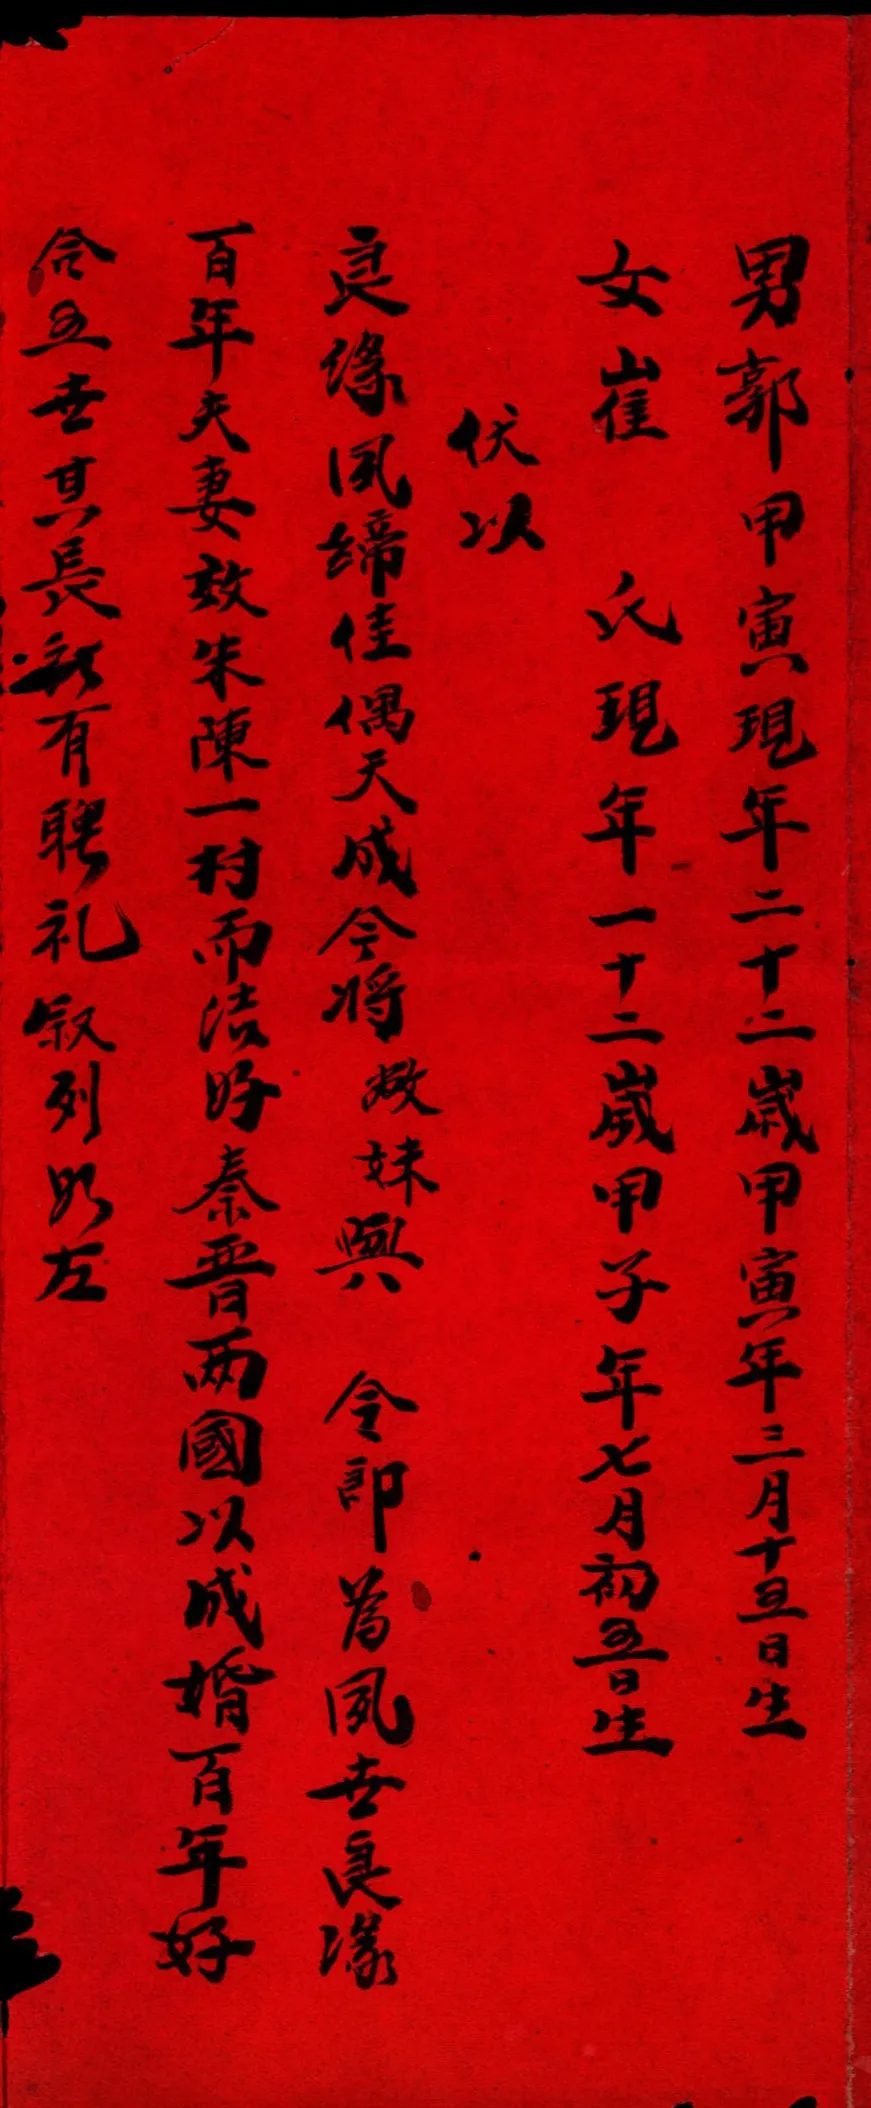 男郭甲寅現年二十二歲甲寅年三月十五日生
女崔　氏現年一十二歲甲子年七月初五日生
伏以
良緣夙締佳偶天成今將敝妹與　令郎為夙世良緣
百年夫妻效朱陳一村而洁好秦晋兩國以成婚百年好
合五世其長所有聘礼叙列如左